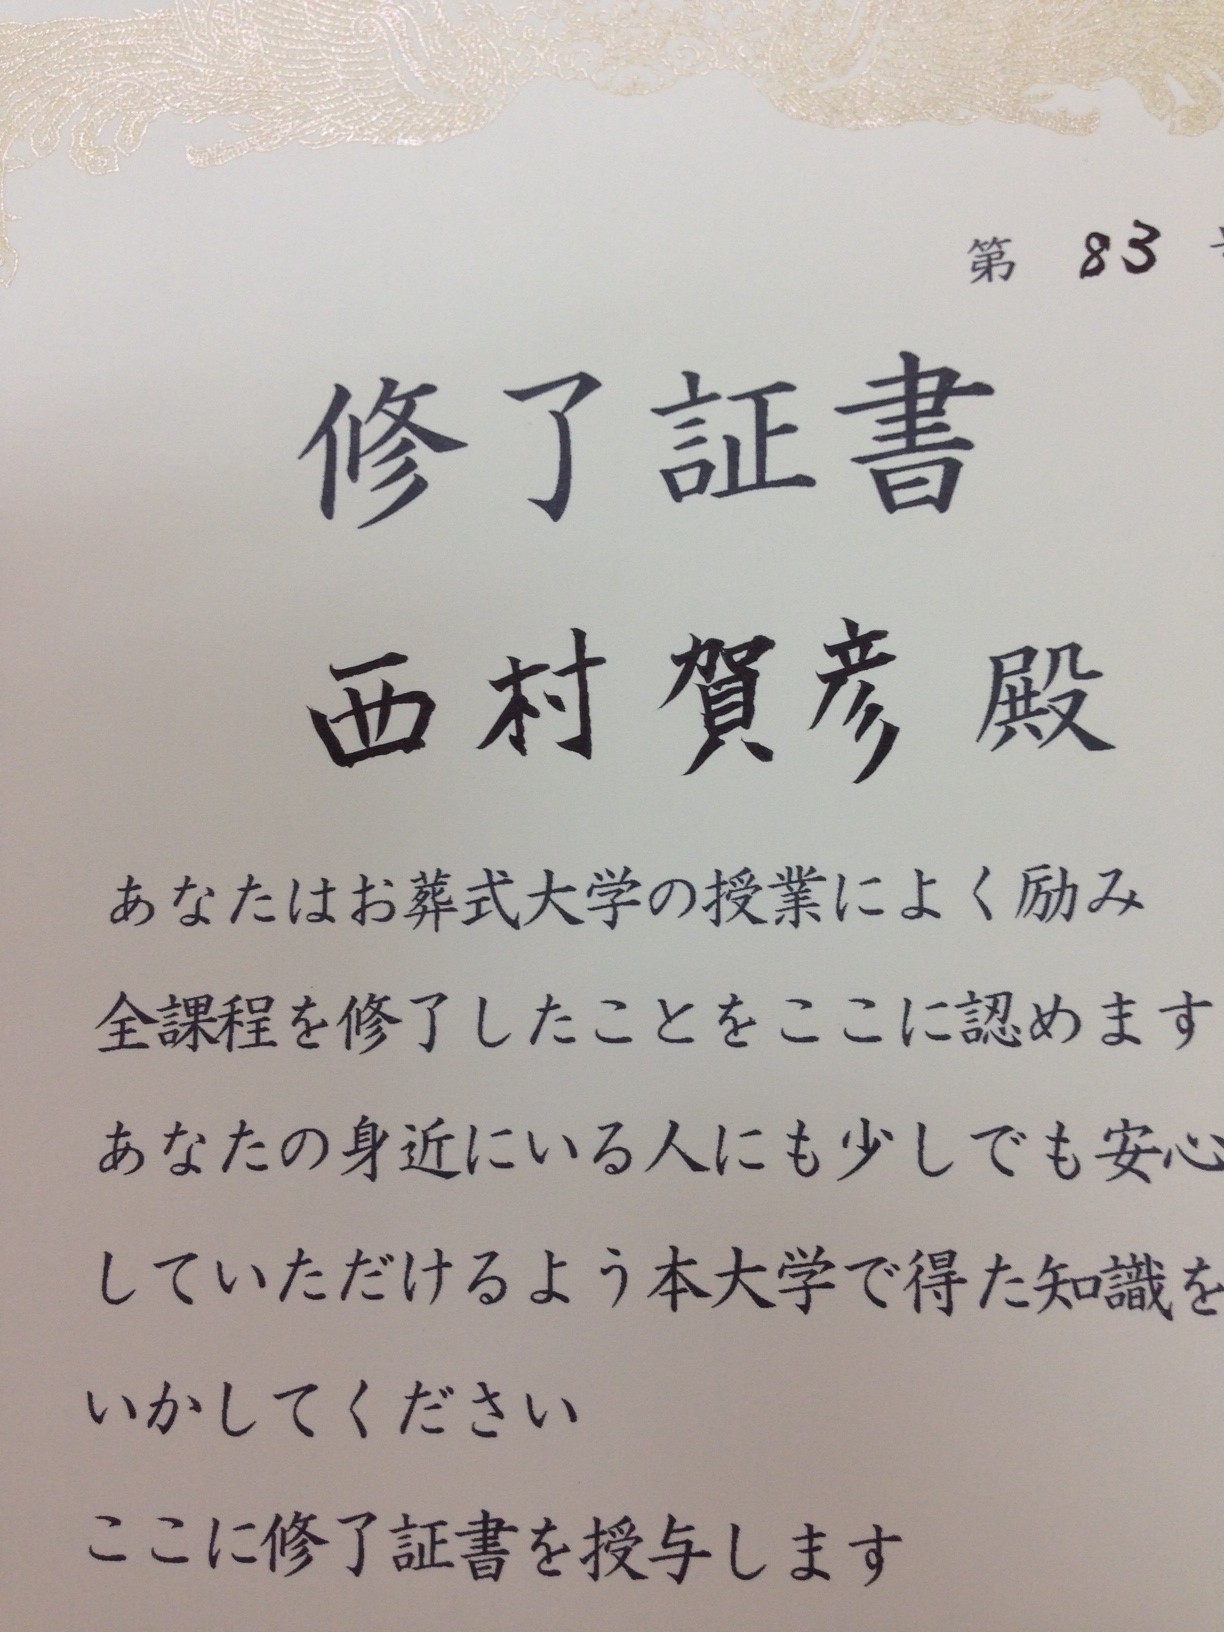 第 83
修了証書
西村賀彦 殿
あなたはお葬式大学の授業によく励み
全課程を修了したことをここに認めます
あなたの身近にいる人にも少しでも安心
していただけるよう本大学で得た知識を
いかしてください
ここに修了証書を授与します